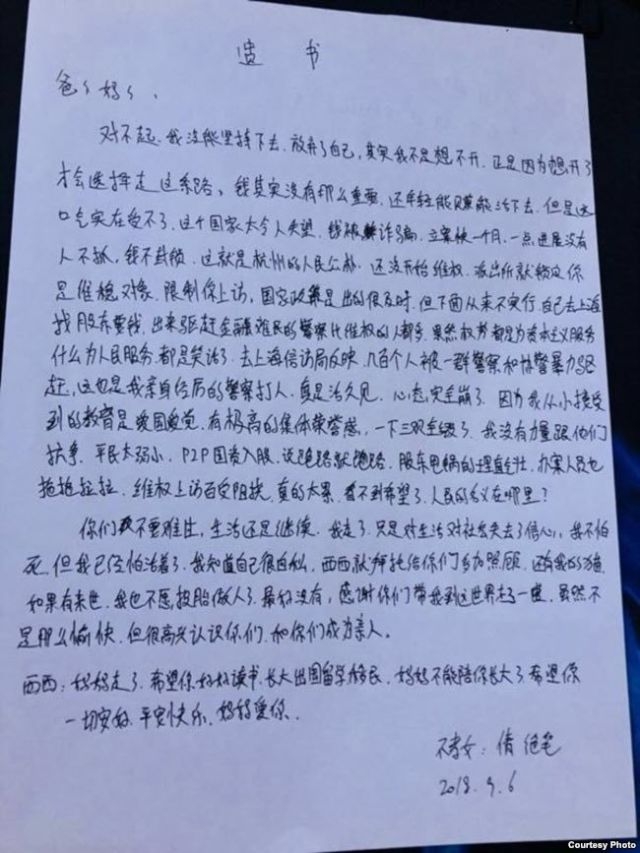 遗 书
爸々妈々、
对不起.我没能坚持下去.放弃了自己,其实我不是想不开.正是因为想开了
才会选择走这条路、钱其实没有那么重要,还年轻能赚能活下去.但是这
口气实在受不了,这个国家太令人失望.钱被诈骗.立案快一个月.一点进展没有
人不抓,钱不封锁.这就是杭州的人民公敌.还没开始维权.派出所就锁定你
是维稳对象.限制你上访,国家政策是出的很及时.但下面从来不实行.自己去上海
找股东要钱,出来驱赶金融难民的警察比维权的人都多.果然权势都是为资本主义服务
什么为人民服务.都是笑话了.去上海信访局反映.几百个人被一群警察和协警暴力驱
赶,这也是我亲身经历的警察打人.真是活久见.心态完全崩了.因为我从小接受
到的教育是爱国自觉.有极高的集体荣誉感,一下三观全毁了.我没有力量跟他们
抗争.平民太弱小.P2P国资入股.说跑路就跑路.股东甩锅的理直气壮.办案人员也
拖拖拉拉.维权上访百受阻挠.真的太累.看不到希望了.人民的名义在哪里?
你们不要难过,生活还是继续.我走了.只是对生活对社会失去了信心,我不怕
死.但我已经怕活着了.我知道自己很自私.西西就拜托给你们多为照顾.还有我的
如果有来世.我也不愿投胎做人了.最好没有,感谢你们带我到这世界走了一趟.虽然不
是那么愉快.但很高兴认识你们.和你们成为亲人。
西西:妈妈走了.希望你好好读书.长大出国留学移民.妈妈不能陪你长大了希望你
一切安好.平安快乐.妈妈爱你.
不孝女:倩 绝笔
2018.9.6
Courtesy Photo